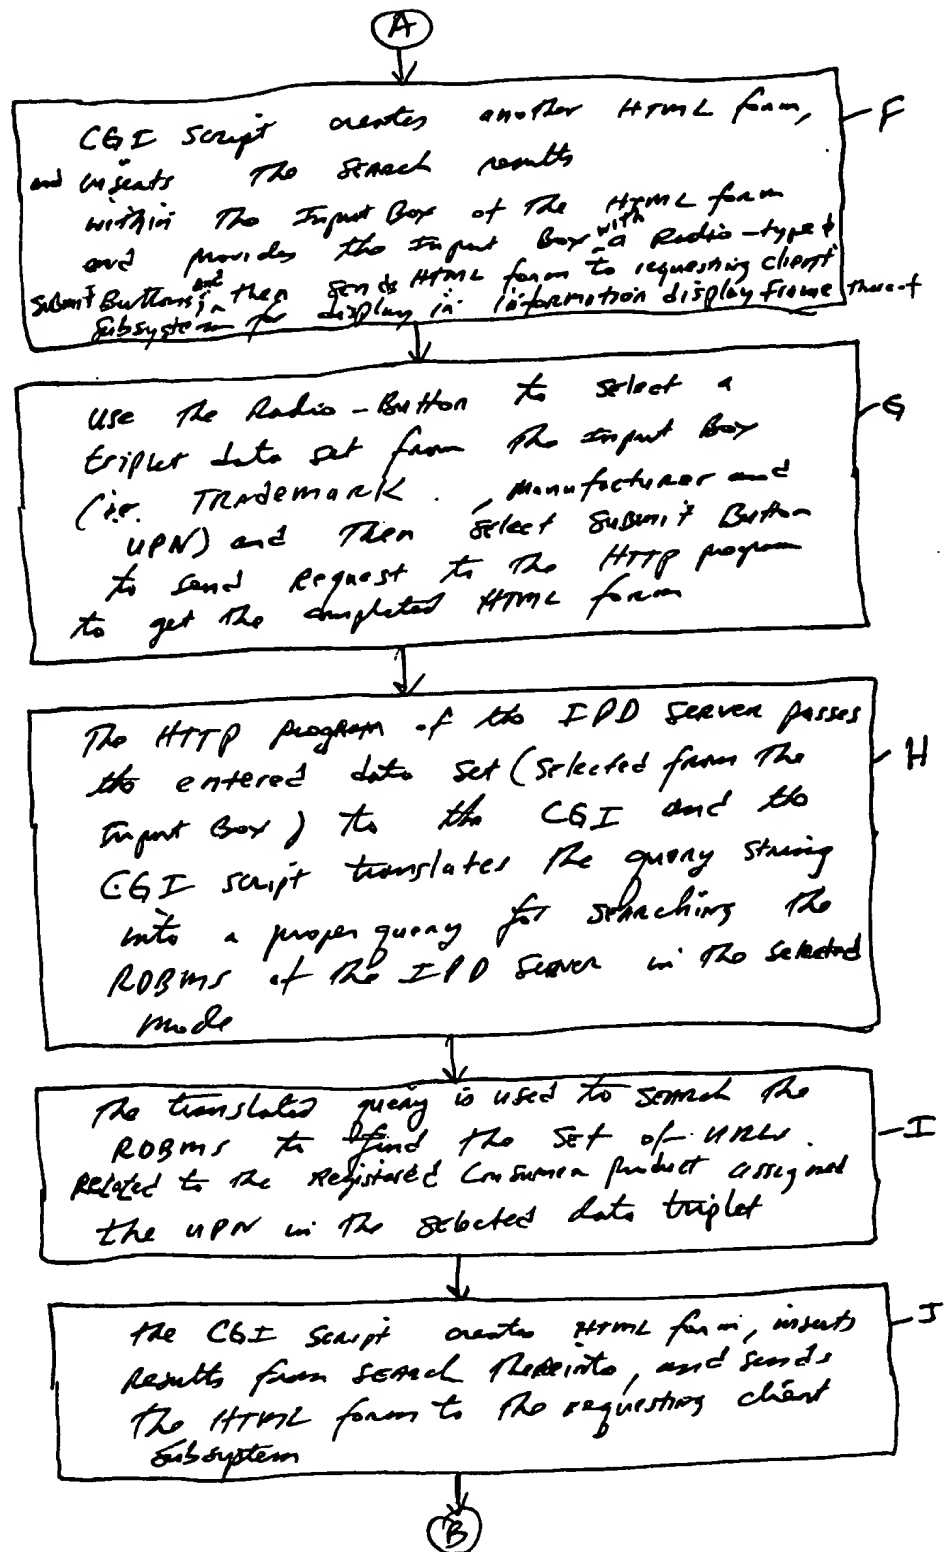 A
CGI Script creates another HTML form, F
and inserts the search results
within the Input Box of the HTML form
and provides the Input Box with a Radio-type &
Submit Buttons; and then sends HTML form to requesting client
subsystem for display in information display frame thereof
Use the Radio-Button to select a G
triplet data set from the Input Box
(i.e. TRademark , Manufacturer and
UPN) and then select Submit Button
to send Request to the HTTP program
to get the completed HTML form
The HTTP program of the IPD Server passes
the entered data set (selected from the H
Input Box) to the CGI and the
CGI script translates the query string
into a proper query for searching the
RDBMS of the IPD Server in the selected
mode
The translated query is used to search the
RDBMS to find the set of URLs. I
Related to the Registered Consumer product assigned
the UPN in the selected data triplet
the CGI Script creates HTML form, inserts J
Results from search thereinto, and sends
the HTML form to the requesting client
subsystem
B